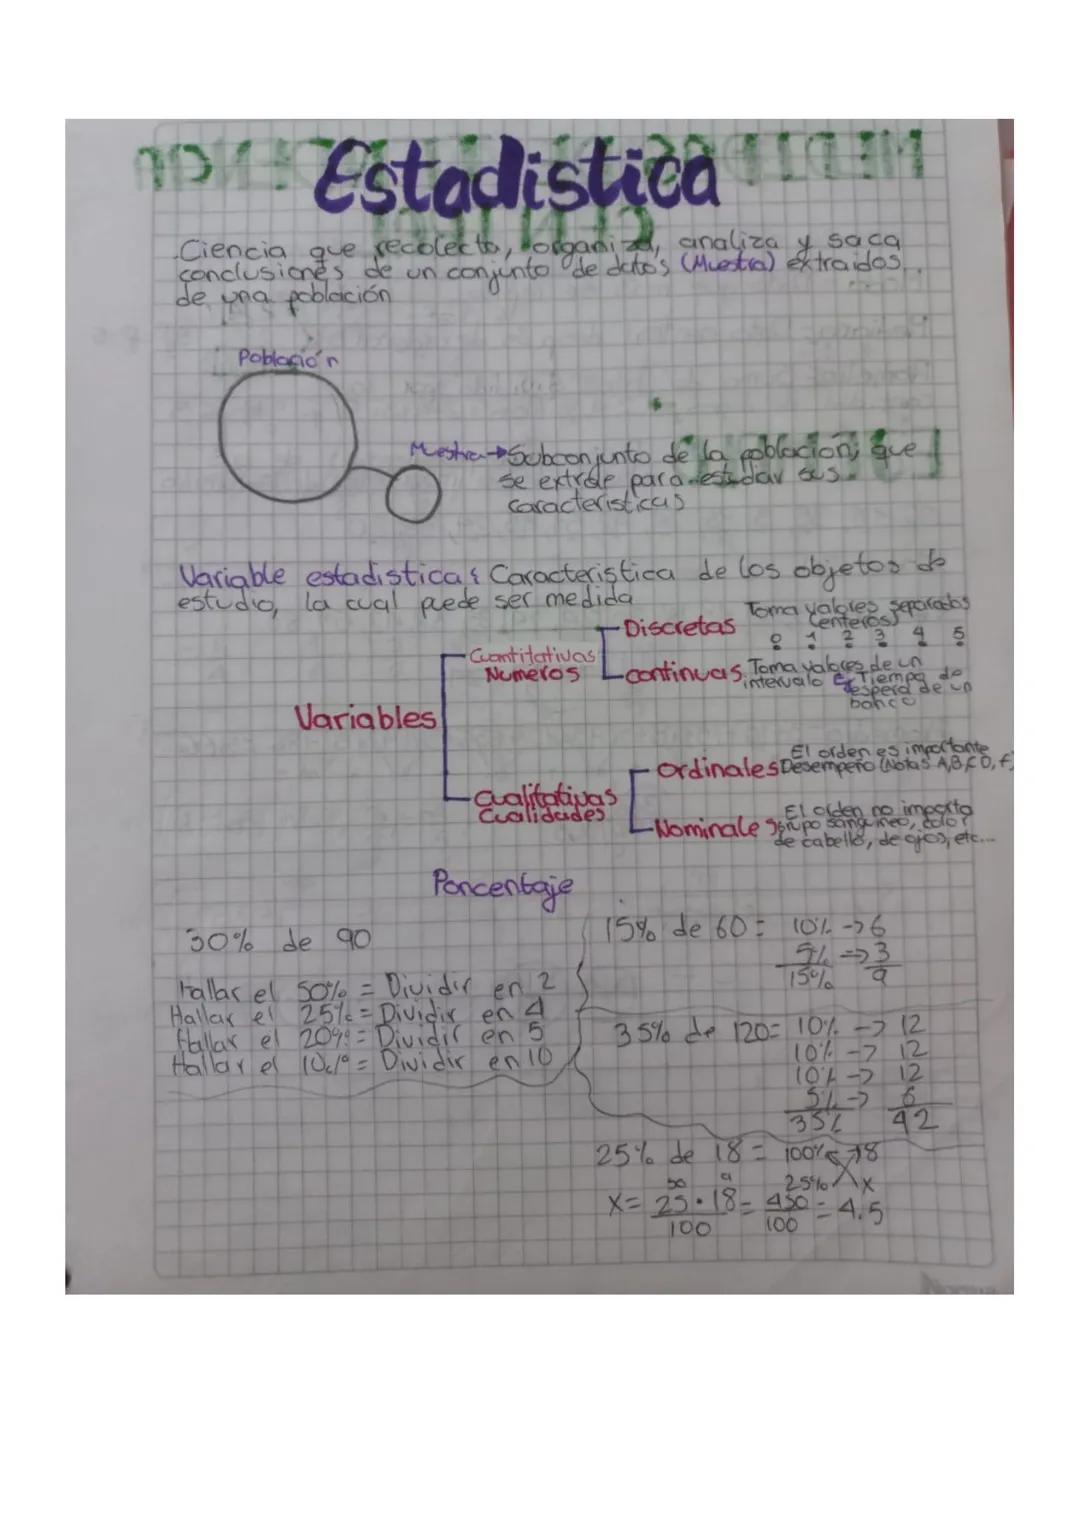 Estadistica
Ciencia que recolecta, organiza, analiza y saca
conclusiones de un conjunto de datos (Muestra) extraidos
de una población
Población
Muestra → Subconjunto de la población, que
se extrae para estudiar sus
caracteristicas
Variable estadistica: Caracteristica de los objetos de
estudio, la cual puede ser medida
Toma valores separados
(enteros)
Discretas
0 1 2 3 4 5
Cuantitativas
Numeros
continuas
Toma valores de un
intervalo Ej Tiempo de
espera de un
banco
Variables
El orden es importante
Ordinales Desempeño (Notas A,B,C,D,F)
Cualitativas
Cualidades
El orden no importa
Nominales Grupo sanguineo, color
de cabello, de ojos, etc...
Porcentaje
30% de 90
Hallar el 50% = Dividir en 2
Hallar el 25% = Dividir en 4
Hallar el 20% = Dividir en 5
Hallar el 10% = Dividir en 10
15% de 60 = 10% → 6
5% → 3
15% 9
35% de 120 = 10% → 12
10% → 12
10% → 12
5% → 6
35% 42
25% de 18 = 100% 18
25% x
50 9
X = 25 · 18 = 450 = 4.5
100 100